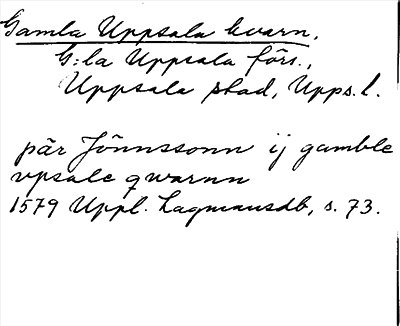 Gamla Uppsala kvarn,
G:la Uppsala förs.,
Uppsala stad, Upps. l.
pär Jönnssonn ij gamble
vpsale qwarnn
1579 Uppl. Lagmansdb, s. 73.